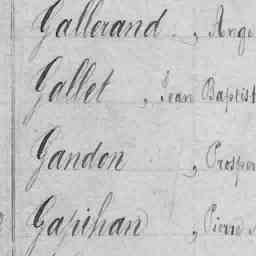 Gallerand , Ange
Gallet , Jean Baptist
Gandon , Prosper
Gapihan , Pierre